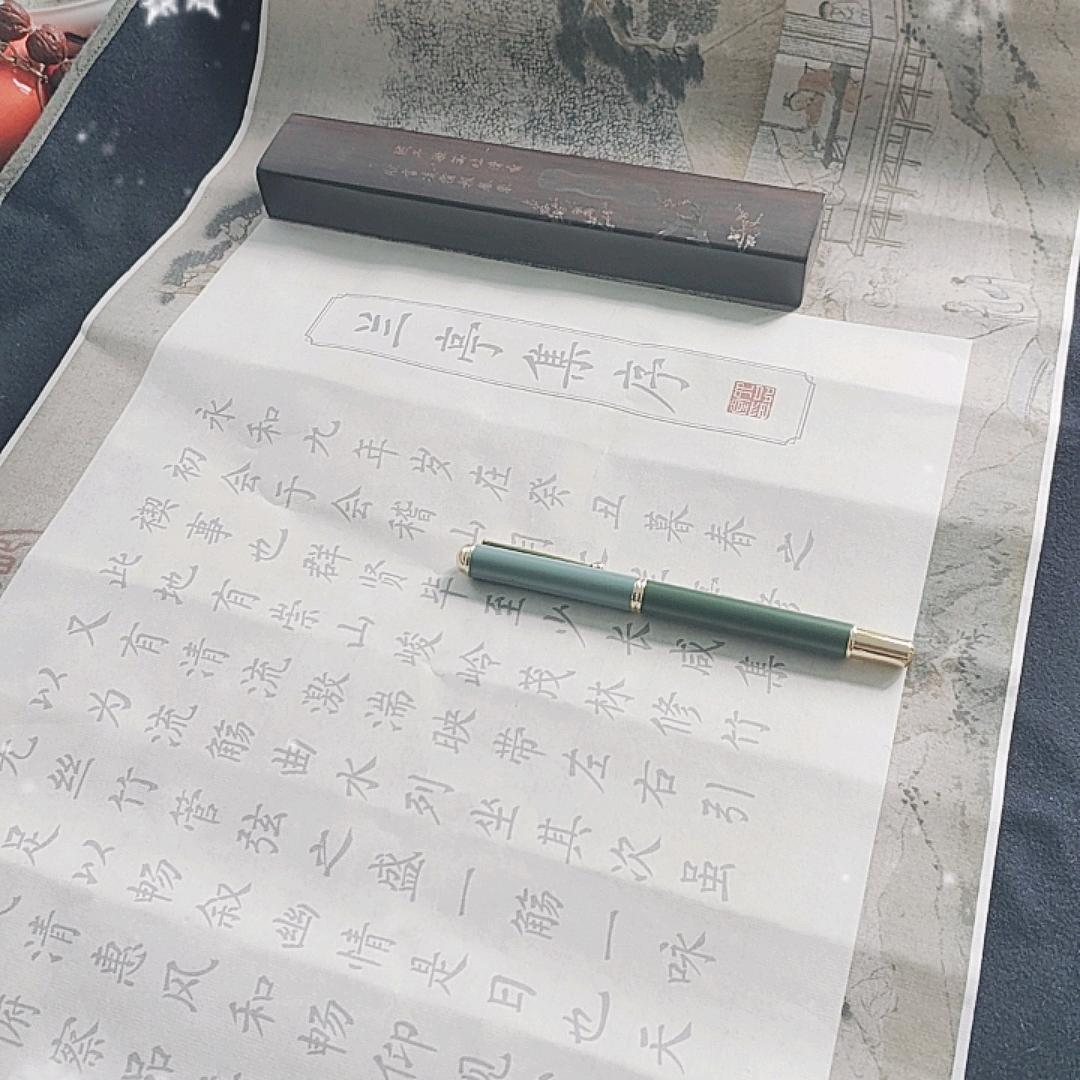 兰亭集序
永和九年岁在癸丑暮春之
初会于会稽山
禊事也群贤毕至少长咸集
此地有崇山峻岭茂林修竹
又有清流激湍映带左右引
以为流觞曲水列坐其次虽
无丝竹管弦之盛一觞一咏
足以畅叙幽情是日也天
清惠风和畅仰观
俯察品